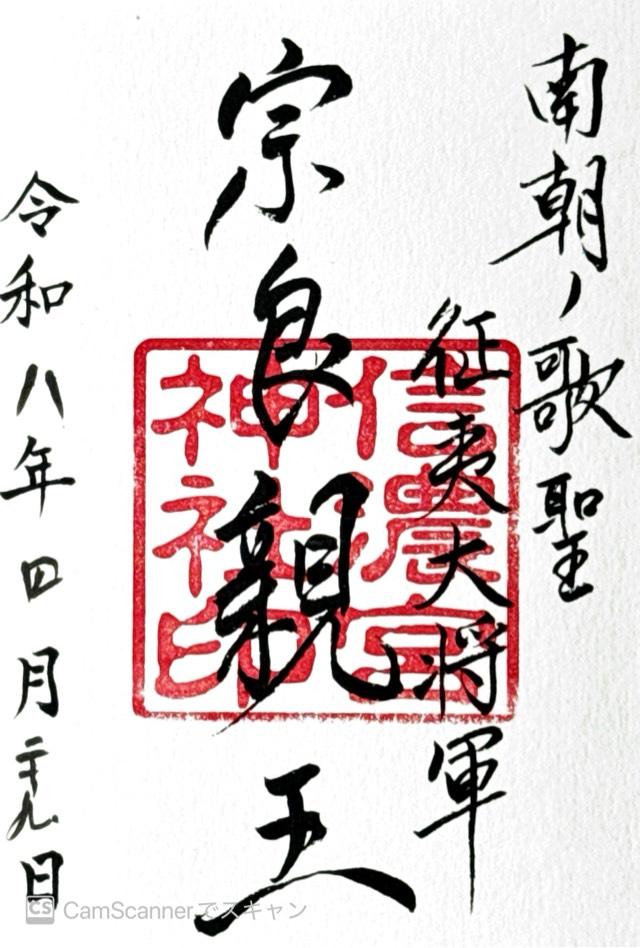 南朝ノ歌聖
征夷大将軍
宗良親王
信濃宮
神社印
令和八年四月二十九日
CamScannerでスキャン